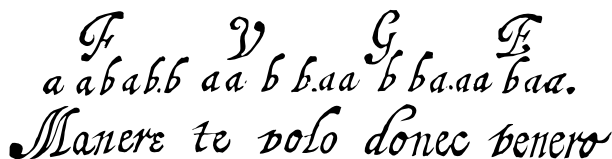 F V G E
a ab ab.b aa b b.aa b ba.aa baa.
Manere te volo donec venero